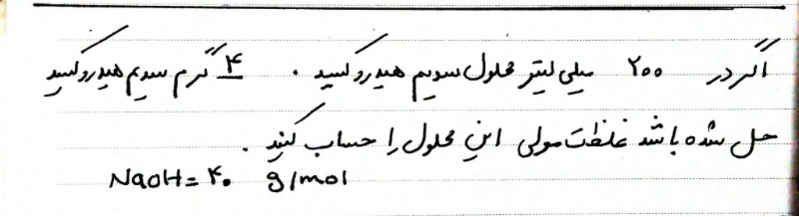 اگر در ۲۰۰ میلی لیتر محلول سدیم هیدروکسید . ۴ گرم سدیم هیدروکسید
حل شده باشد غلظت مولی این محلول را حساب کنید .
NaOH = ۴۰ g/mol